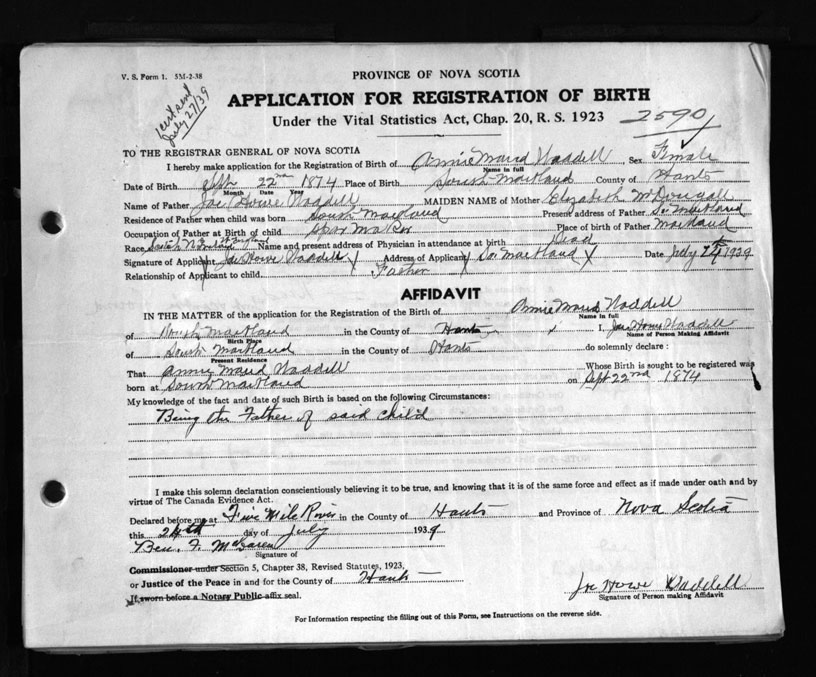 V. S. Form 1. 5M-2-38
PROVINCE OF NOVA SCOTIA
APPLICATION FOR REGISTRATION OF BIRTH
Under the Vital Statistics Act, Chap. 20, R. S. 1923
2590
July 27/39
TO THE REGISTRAR GENERAL OF NOVA SCOTIA
I hereby make application for the Registration of Birth of Annie Maud Waddell Sex Female
Name in full
Date of Birth Sept. 22nd 1874 Place of Birth South Maitland County of Hants
Month Date Year
Name of Father Joe Howe Waddell MAIDEN NAME of Mother Elizabeth McDougall
Residence of Father when child was born South Maitland Present address of Father So. Maitland
Occupation of Father at Birth of child Spar Maker Place of birth of Father Maitland
Race Name and present address of Physician in attendance at birth Dead
Signature of Applicant Joe Howe Waddell Address of Applicant So. Maitland Date July 24 1939
Relationship of Applicant to child Father
AFFIDAVIT
IN THE MATTER of the application for the Registration of the Birth of Annie Maud Waddell
Name in full
of South Maitland in the County of Hants x I, Joe Howe Waddell
Birth Place Name of Person Making Affidavit
of South Maitland in the County of Hants do solemnly declare :
Present Residence
That Annie Maud Waddell Whose Birth is sought to be registered was
born at South Maitland on Sept 22nd 1874
My knowledge of the fact and date of such Birth is based on the following Circumstances:
Being the Father of said child
I make this solemn declaration conscientiously believing it to be true, and knowing that it is of the same force and effect as if made under oath and by
virtue of The Canada Evidence Act.
Declared before me at Five Mile River in the County of Hants and Province of Nova Scotia
this 24th day of July 1939
Ben. F. McLaren
Signature of
Commissioner under Section 5, Chapter 38, Revised Statutes, 1923,
or Justice of the Peace in and for the County of Hants
If sworn before a Notary Public affix seal.
Joe Howe Waddell
Signature of Person making Affidavit
For Information respecting the filling out of this Form, see Instructions on the reverse side.